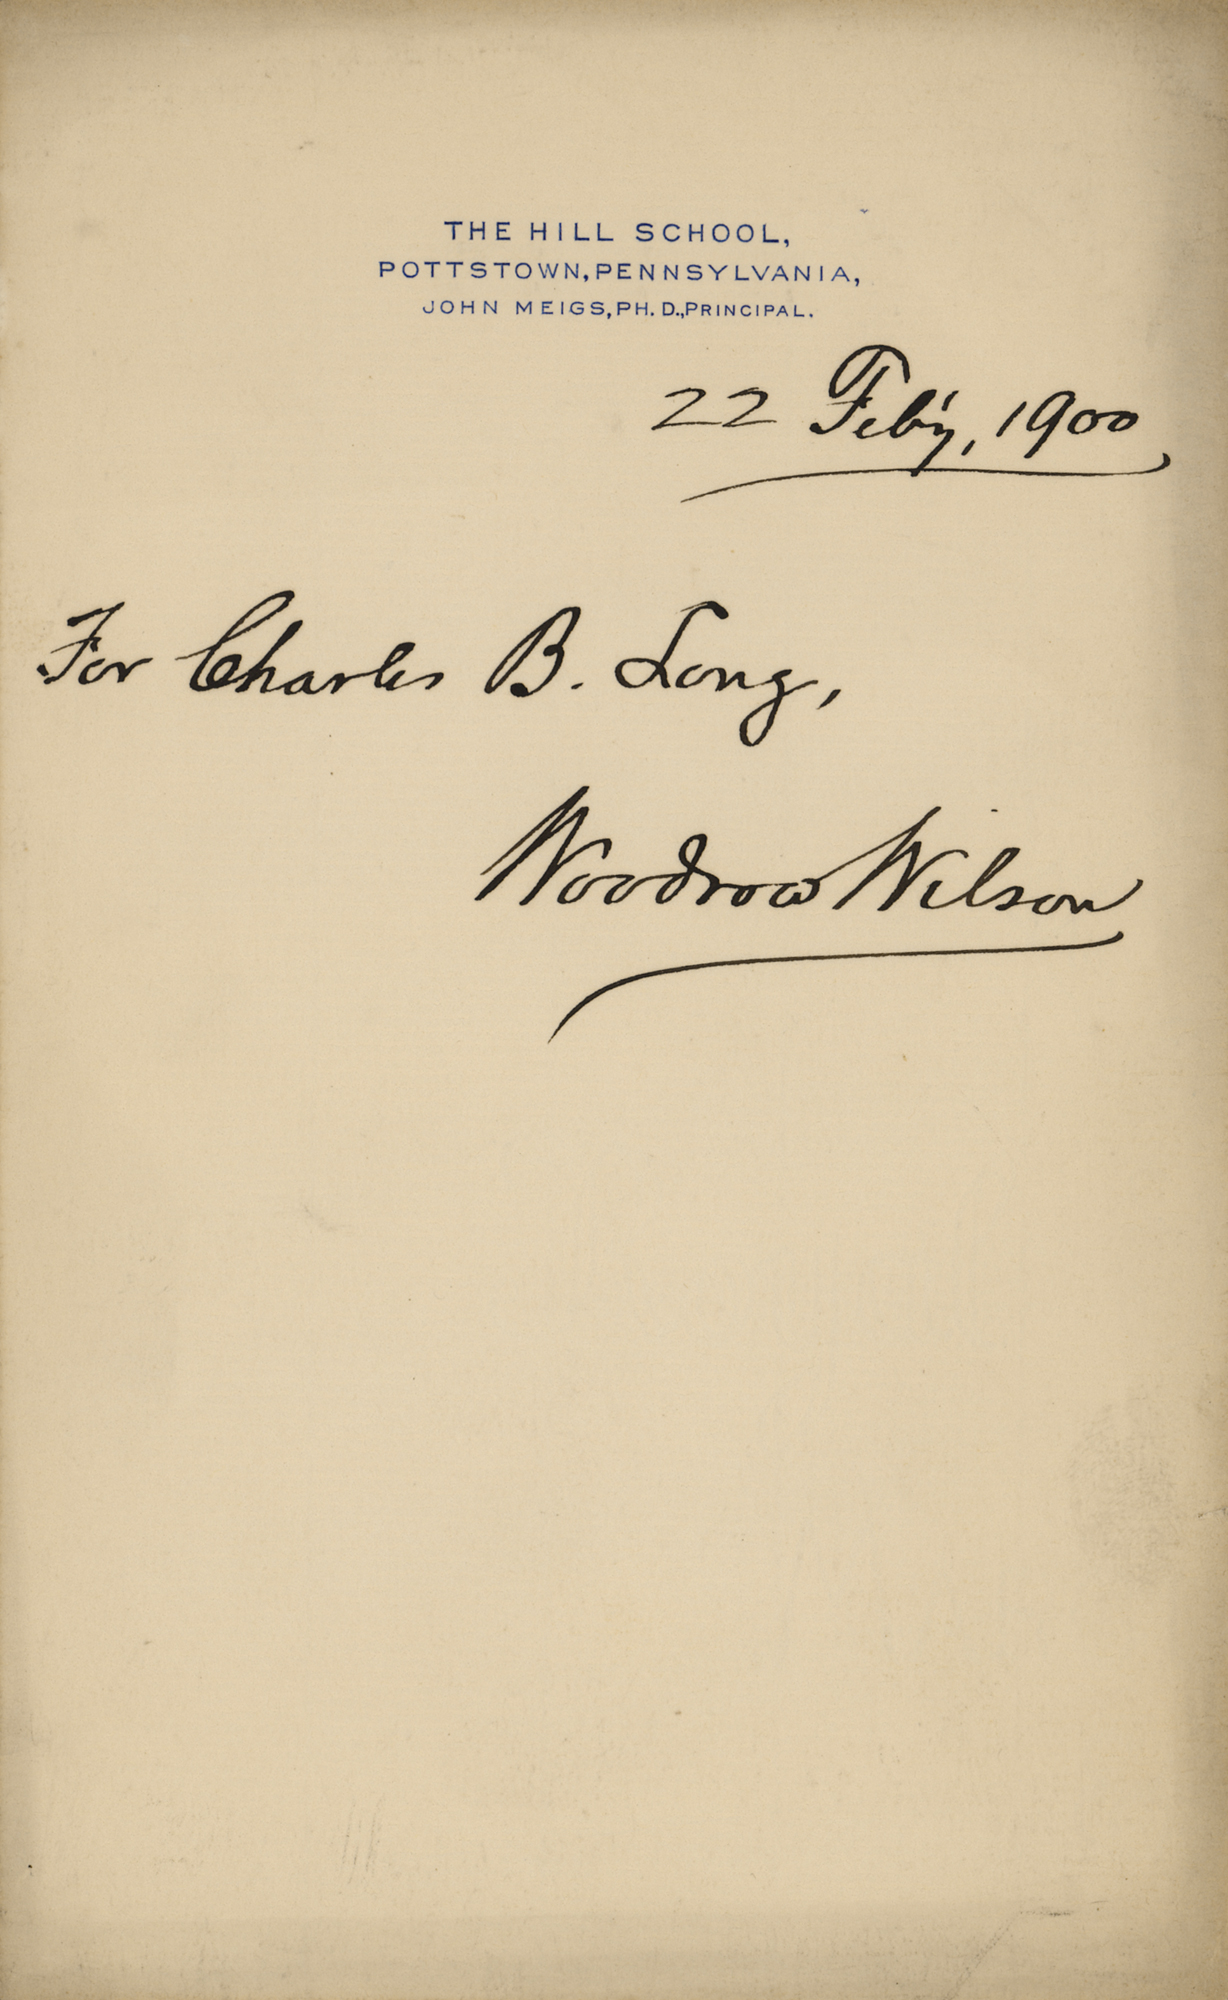 THE HILL SCHOOL,
POTTSTOWN, PENNSYLVANIA,
JOHN MEIGS, PH. D., PRINCIPAL.
22 Feb'y, 1900
For Charles B. Long,
Woodrow Wilson